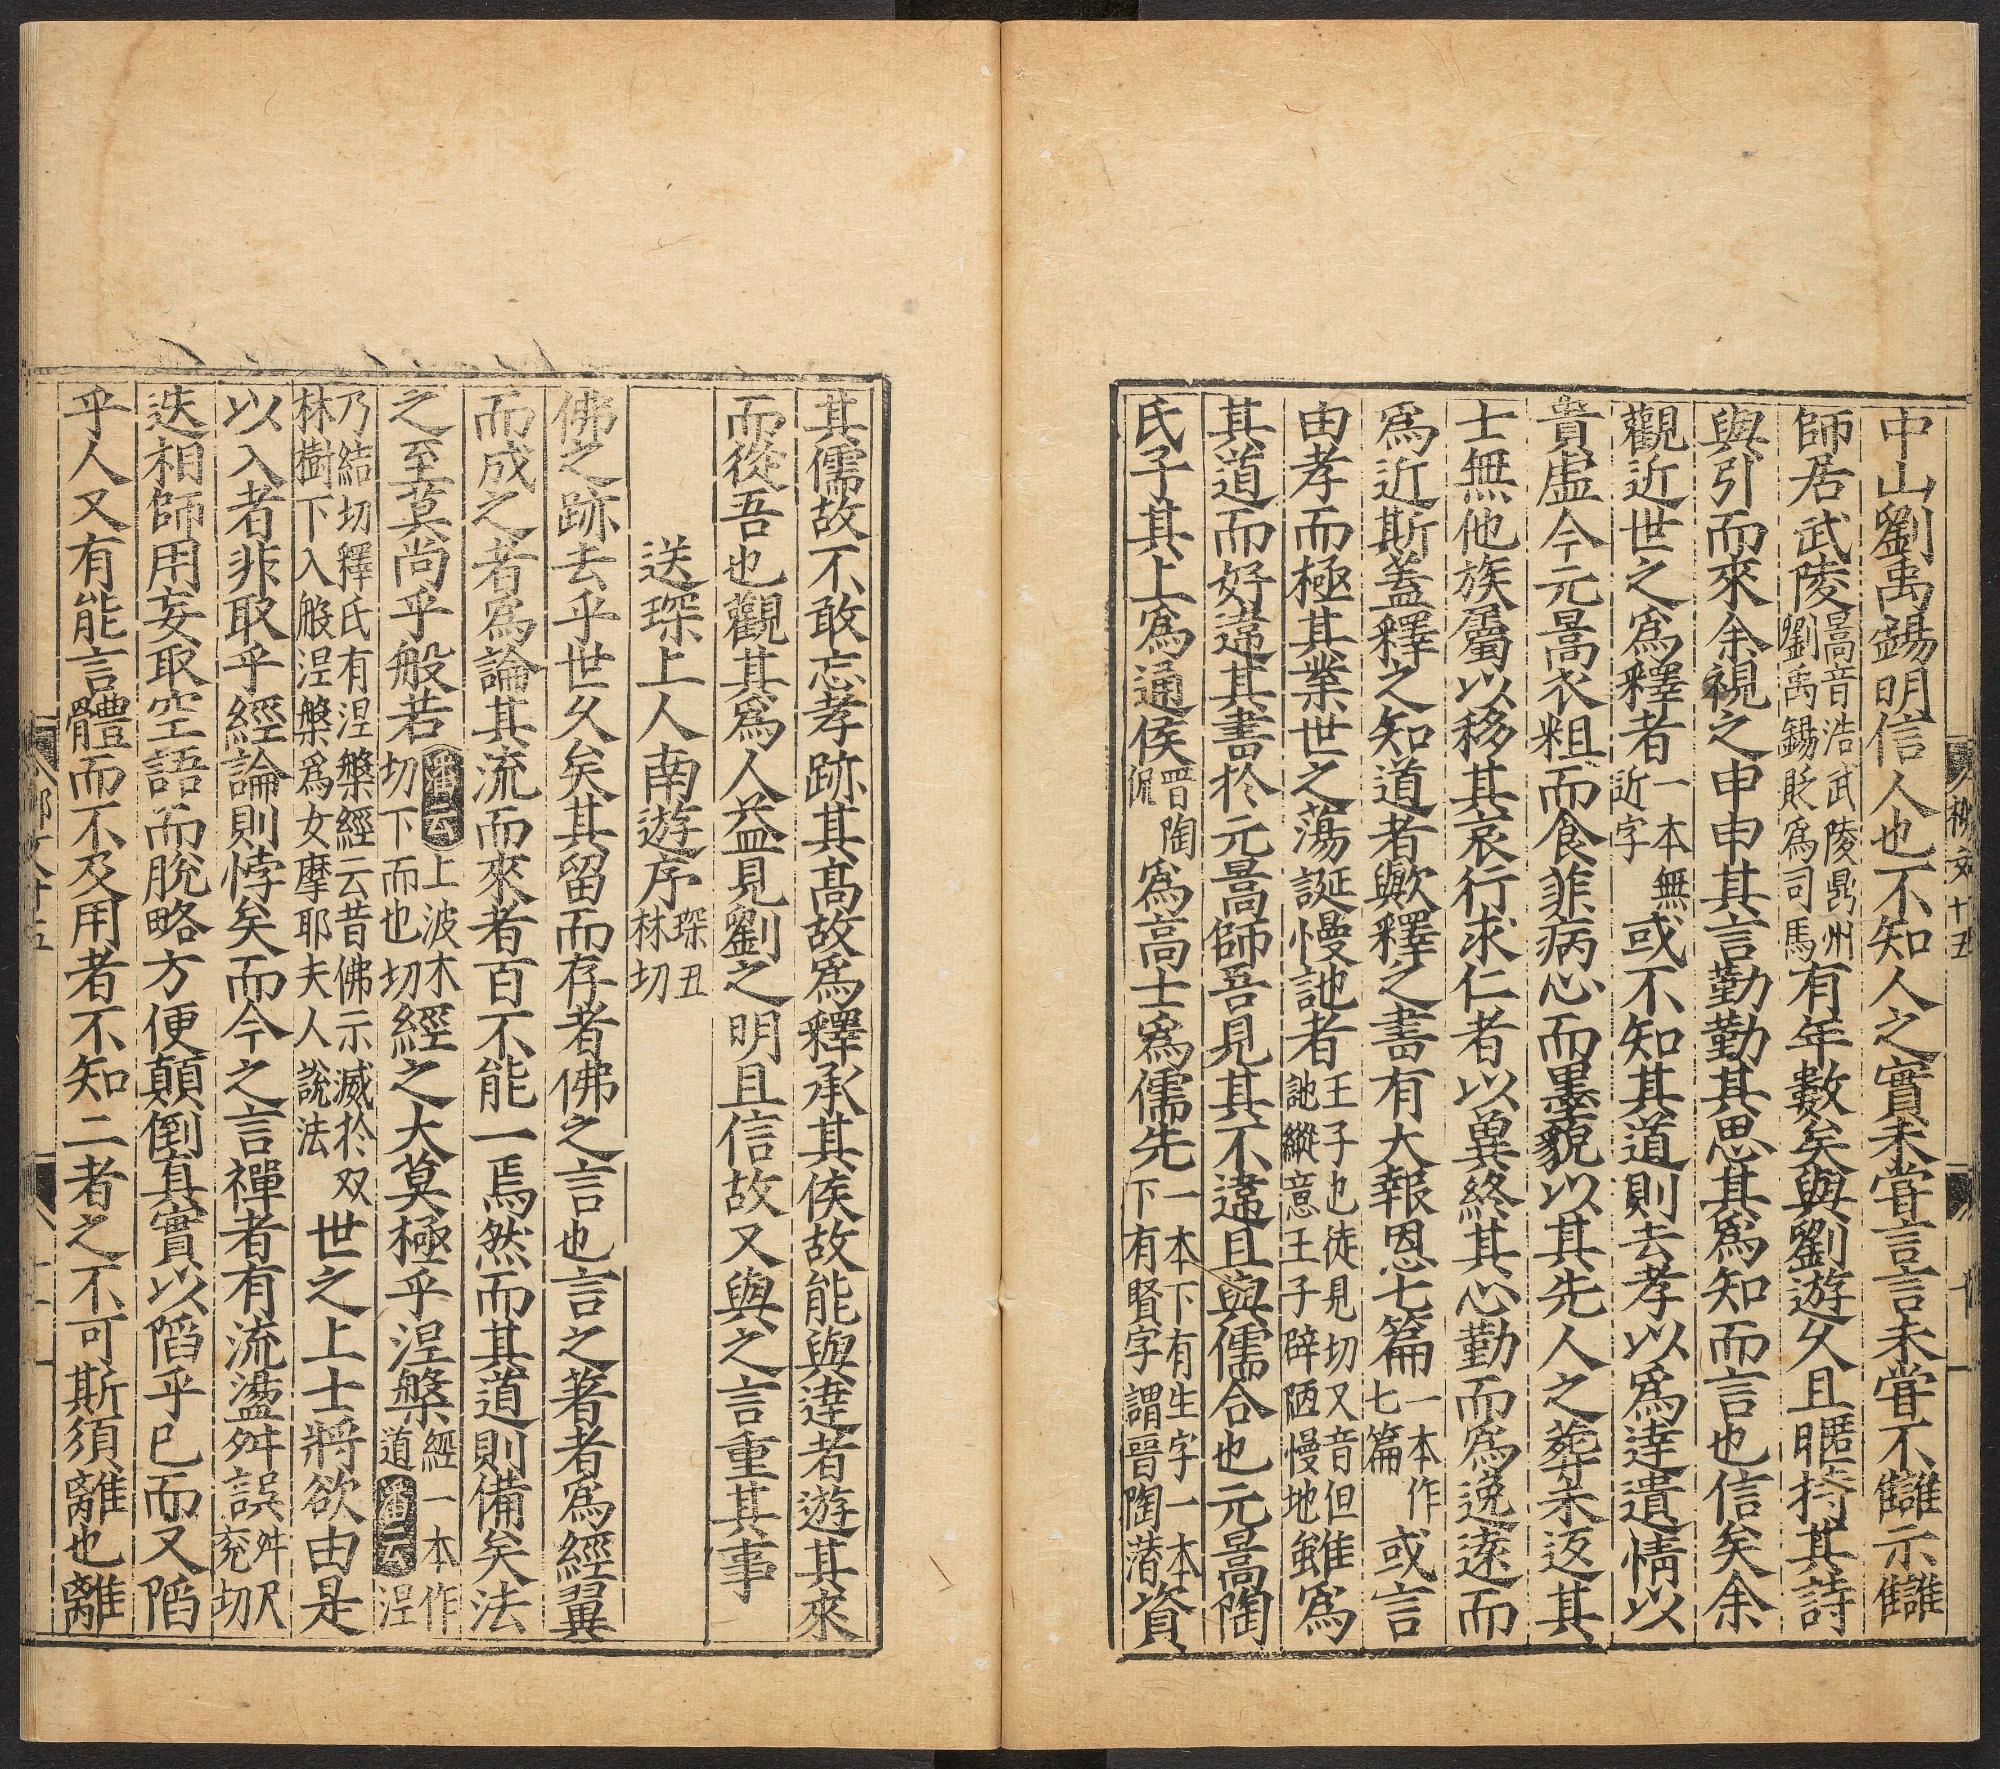 中山劉禹錫明信人也不知人之實未甞言言未甞不讎示讎
師居武陵暠音浩武陵鼎州劉禹錫貶爲司馬有年數矣與劉遊久且暱持其詩
與引而來余視之申申其言勤勤其思其爲知而言也信矣余
觀近世之爲釋者一本無近字或不知其道則去孝以爲達遺情以
貴虛今元暠衣粗而食菲病心而墨貌以其先人之葬未返其
士無他族屬以移其哀行求仁者以兾終其心勤而爲逸遠而
爲近斯蓋釋之知道者歟釋之書有大報恩七篇一本作七篇或言
由孝而極其業世之蕩誕慢訑者王子也徒見切又音但訑縱意王子辟陋慢地雖爲
其道而好違其書於元暠師吾見其不違且與儒合也元暠陶
氏子其上爲通侯晋陶侃爲高士爲儒先一本下有生字一本下有賢字謂晋陶潛資
其儒故不敢忘孝跡其髙故爲釋承其侯故能與達者遊其來
而從吾也觀其爲人益見劉之明且信故又與之言重其事
送琛上人南遊序琛丑林切
佛之跡去乎世久矣其留而存者佛之言也言之著者爲經翼
而成之者爲論其流而來者百不能一焉然而其道則備矣法
之至莫尚乎般若潘云上波木切下而也切經之大莫極乎涅槃經一本作道潘云涅
乃結切釋氏有涅槃經云昔佛示滅於双林樹下入般涅槃爲女摩耶夫人說法世之上士將欲由是
以入者非取乎經論則悖矣而今之言禪者有流盪舛誤舛尺兖切
迭相師用妄取空語而脫略方便顛倒真實以陷乎已而又陷
乎人又有能言體而不及用者不知二者之不可斯須離也離
柳文十五